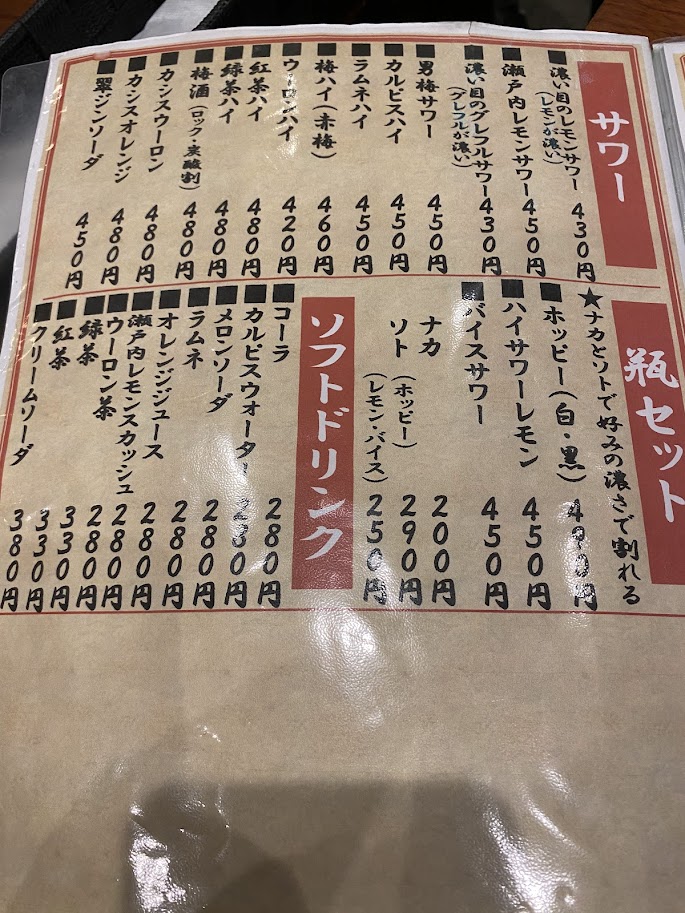 サワー
■濃い目のレモンサワー 430円
(レモンが濃い)
■瀬戸内レモンサワー 450円
■濃い目のグレフルサワー 430円
(グレフルが濃い)
■男梅サワー 450円
■カルピスハイ 450円
■ラムネハイ 450円
■梅ハイ(赤梅) 460円
■ウーロンハイ 420円
■紅茶ハイ 480円
■緑茶ハイ 480円
■梅酒(ロック・炭酸割) 480円
■カシスウーロン 480円
■カシスオレンジ 480円
■翠ジンソーダ 450円
瓶セット
★ナカとソトで好みの濃さで割れる
■ホッピー(白・黒) 490円
■ハイサワーレモン 450円
■バイスサワー 450円
ナカ 200円
ソト (ホッピー) 290円
(レモン・バイス) 250円
ソフトドリンク
■コーラ 280円
■カルピスウォーター 280円
■メロンソーダ 280円
■ラムネ 280円
■オレンジジュース 280円
■瀬戸内レモンスカッシュ 280円
■ウーロン茶 280円
■緑茶 280円
■紅茶 330円
■クリームソーダ 330円
380円